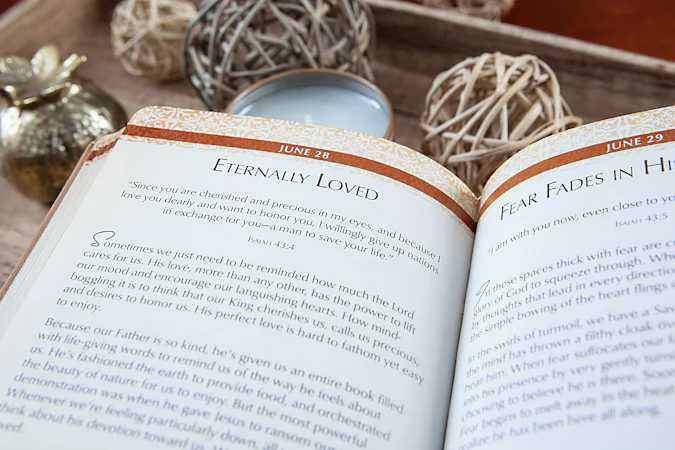 JUNE 28
ETERNALLY LOVED
"Since you are cherished and precious in my eyes, and because I
love you dearly and want to honor you, I willingly give up nations
in exchange for you—a man to save your life."
ISAIAH 43:4
Sometimes we just need to be reminded how much the Lord
cares for us. His love, more than any other, has the power to lift
our mood and encourage our languishing hearts. How mind-
boggling it is to think that our King cherishes us, calls us precious,
and desires to honor us. His perfect love is hard to fathom yet easy
to enjoy.
Because our Father is so kind, he's given us an entire book filled
with life-giving words to remind us of the way he feels about
us. He's fashioned the earth to provide food, and orchestrated
the beauty of nature for us to enjoy. But the most powerful
demonstration was when he gave Jesus to ransom our
Whenever we're feeling particularly down, all
think about his devotion toward us.
JUNE 29
FEAR FADES IN
"I am with you now, even close to
ISAIAH 43:5
In these spaces thick with fear are
glory of God to squeeze through.
by thoughts that lead in every direction
the simple bowing of the heart flings
In the swirls of turmoil, we have a
the mind has thrown a filthy cloak
hear him. When fear suffocates our
into his presence by very gently
choosing to believe he is there.
Fear begins to melt away in the
realize he has been here all along.